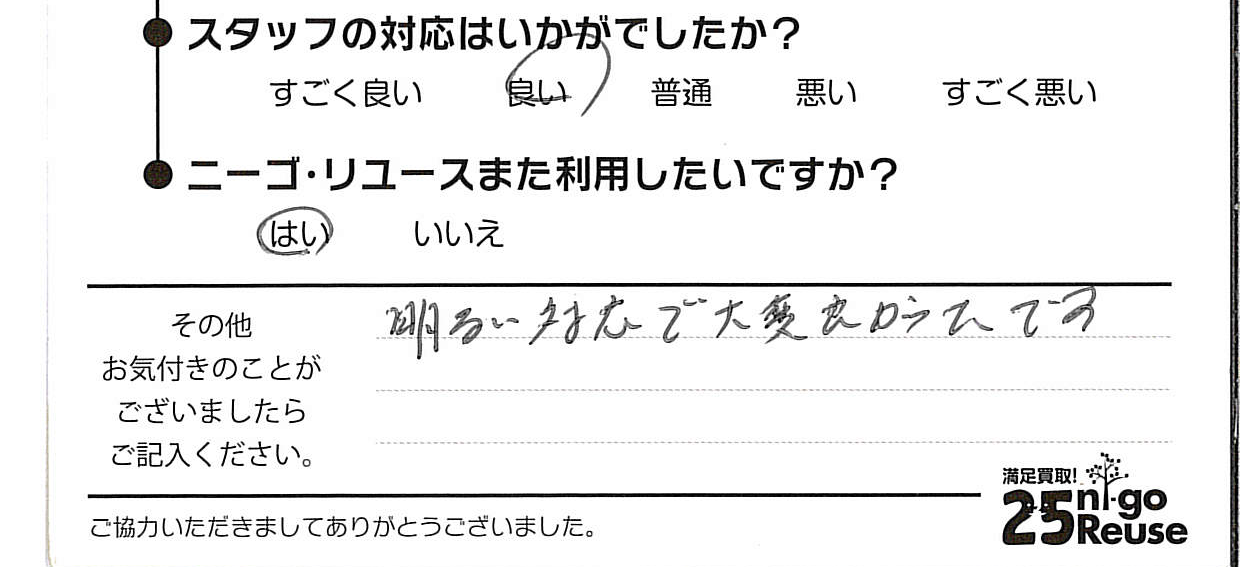 スタッフの対応はいかがでしたか？
すごく良い 良い 普通 悪い すごく悪い
ニーゴ・リユースまた利用したいですか？
はい いいえ
その他
お気付きのことが
ございましたら
ご記入ください。
明るい対応で大変良かったです
満足買取!
25 ni-go
Reuse
ご協力いただきましてありがとうございました。